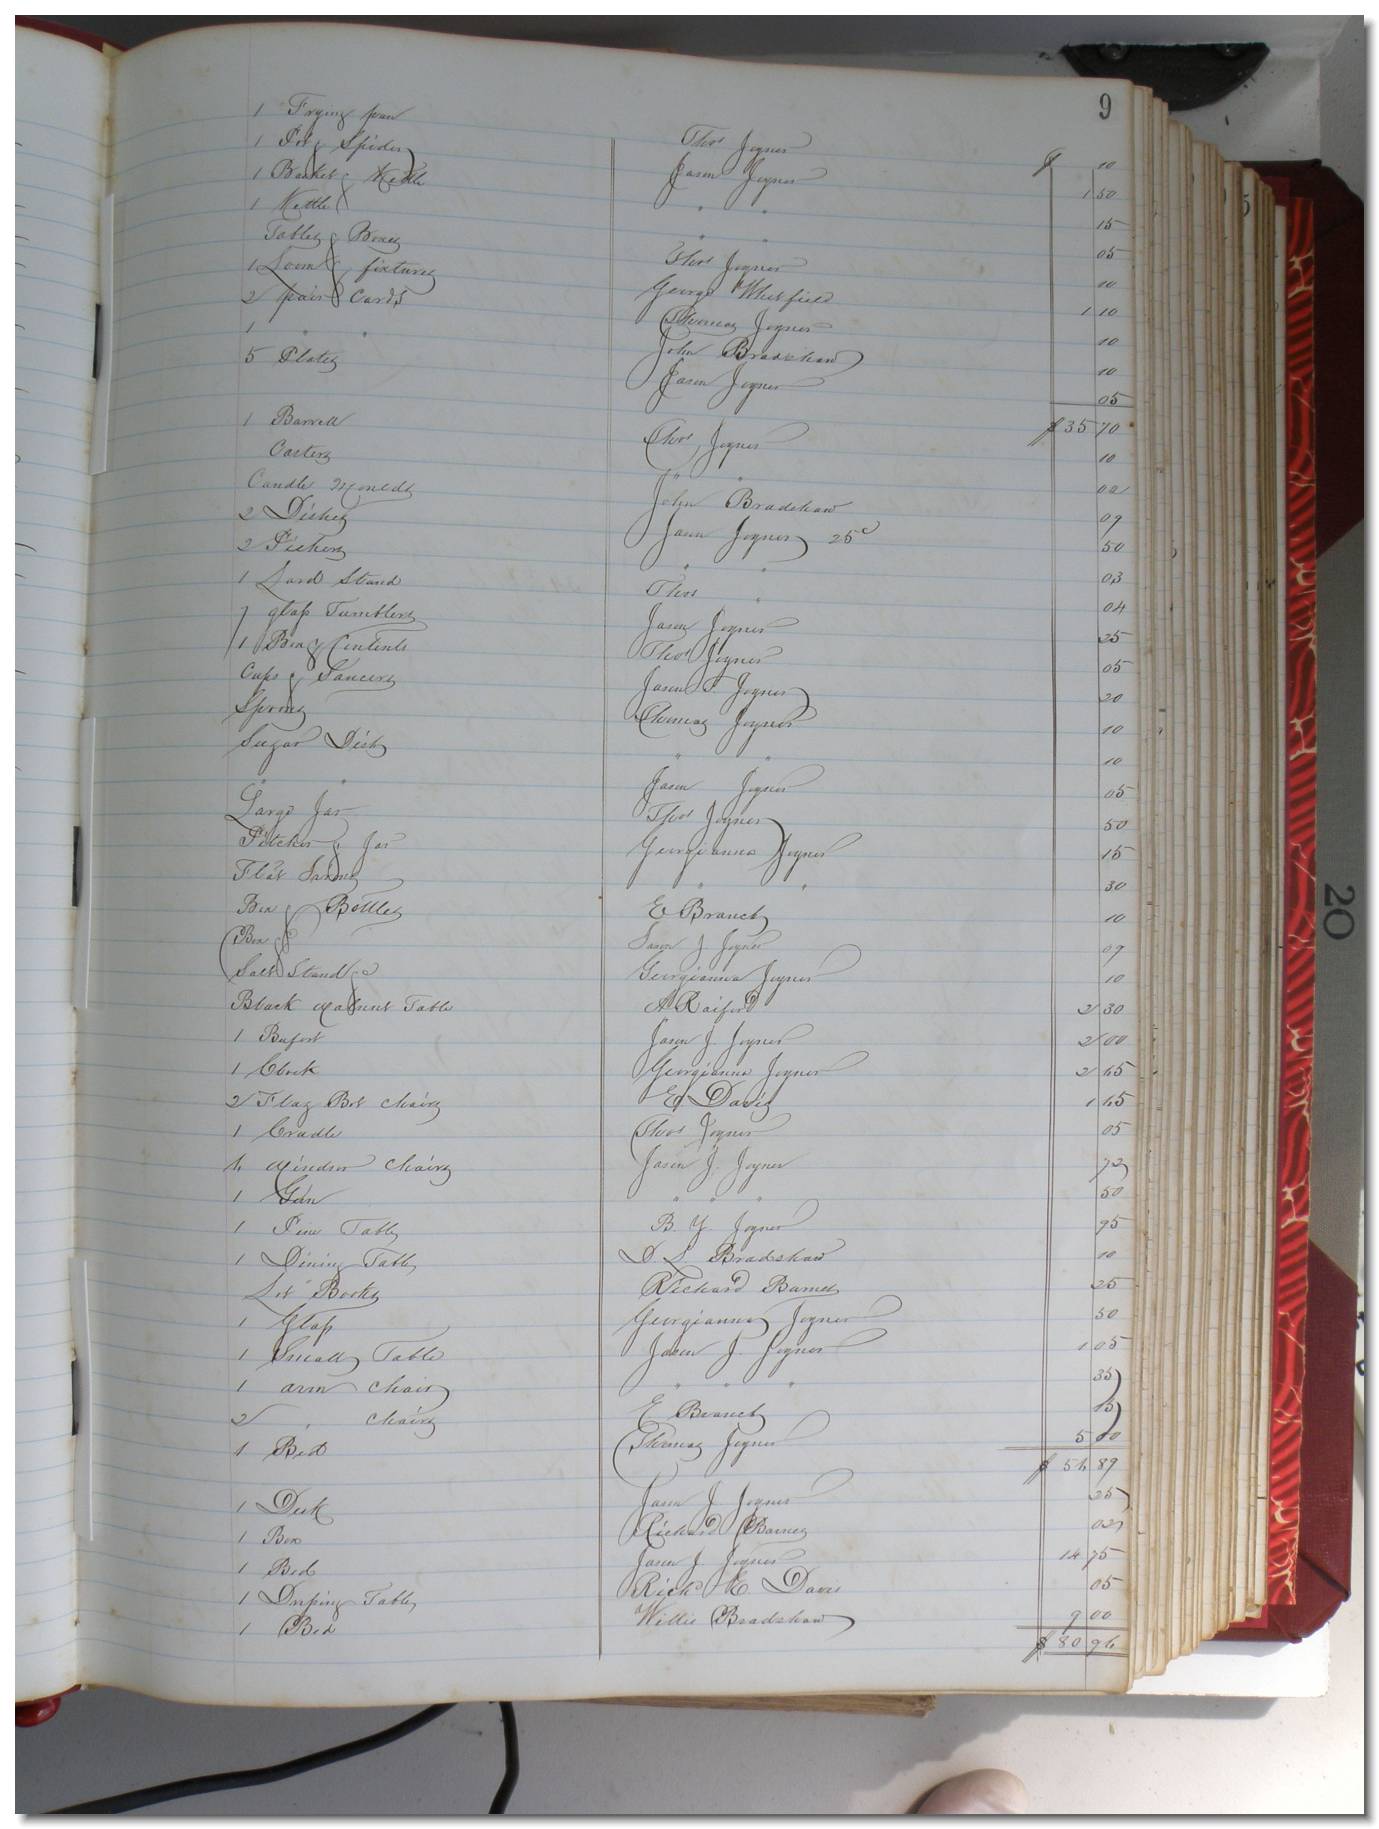 9
1 Frying pan Thos Joyner $ 10
1 Pot & Spider Jason Joyner 1 50
1 Basket & Kettle " " 15
1 Kettle " " 05
Tables & Boxes Thos Joyner 10
1 Loom & fixtures George Whitfield 1 10
2 pair Cards Thomas Joyner 10
1 " " John Bradshaw 10
5 Plates Jason Joyner 05
$ 35 70
1 Barrell Thos Joyner 10
Casters " "
Candle Moulds John Bradshaw 09
2 Dishes Jason Joyner 25c 50
2 " " 03
1 Lard Stand Thos " 04
7 glass Tumblers Jason Joyner 25
1 Box & Contents Thos Joyner 05
Cups & Saucers Jason J. Joyner 20
Thomas Joyner 10
Sugar Dish " " 10
" " Jason Joyner 05
Large Jar Thos Joyner 50
Pitcher & Jar Georgianna Joyner 15
Flat " " 30
Box & Bottles E Branch 10
Box & Jason J Joyner 09
Salt Stand &c Georgianna Joyner 10
Black walnut Table A Raiford 2 30
1 Bufort Jason J. Joyner 2 00
1 Clock Georgianna Joyner 2 45
2 Flag Bot chairs E Davis 1 45
1 Cradle Thos Joyner 05
4 windsor chairs Jason J. Joyner 72
1 Gun " " " 50
1 Pine Table B. Y. Joyner 95
1 Dining Table D L Bradshaw 10
Lot Books Richard Barnes 25
1 Glass Georgianna Joyner 50
1 Small Table Jason J. Joyner 1 05
1 arm chair " " " 35
2 " chairs E Branch 15
1 Bed Thomas Joyner 5 00
$ 54 89
1 Desk Jason J Joyner 25
1 Box Richard Barnes 02
1 Bed Jason J. Joyner 14 75
1 Table Rich E Davis 05
1 Bed Willie Bradshaw 9 00
$ 80 96
20